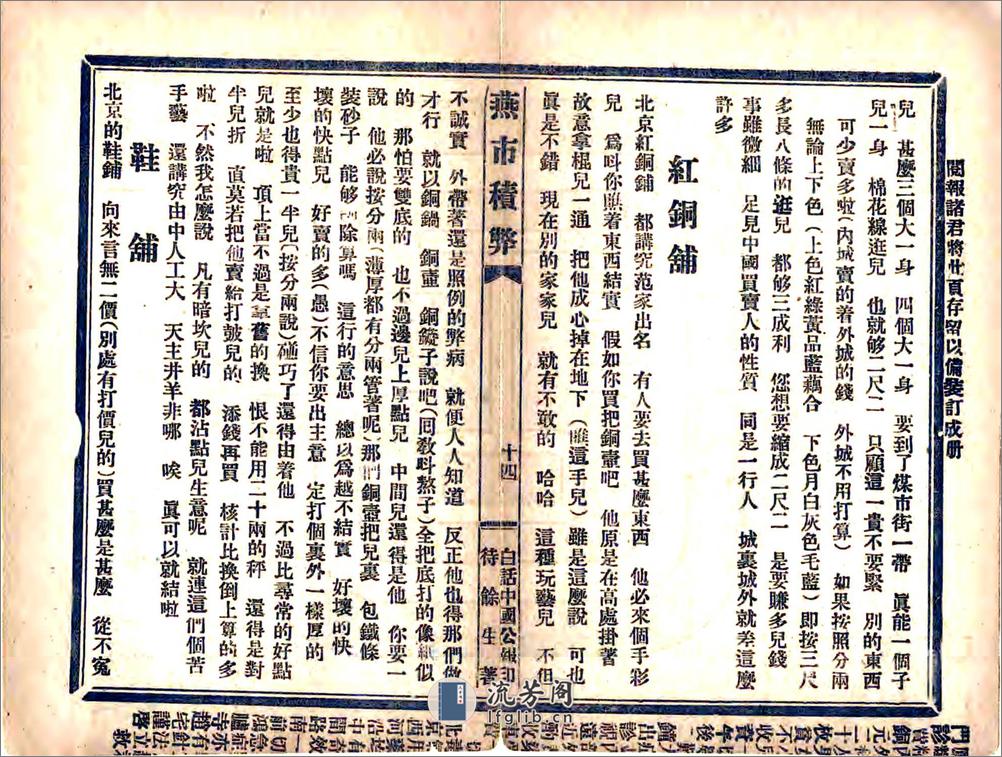 閱報諸君將此頁存留以備裝訂成册
兒 甚麼三個大一身 四個大一身 要到了煤市街一帶 眞能一個子
兒一身 棉花線逛兒 也就够二尺二 只顧這一貴不要緊 別的東西
可少賣多啦(內城賣的着外城的錢 外城不用打算) 如果按照分兩
無論上下色(上色紅綠黃品藍藕合 下色月白灰色毛藍)即按三尺
多長八條的逛兒 都够三成利 您想要縮成二尺二 是要賺多兒錢
事雖微細 足見中國買賣人的性質 同是一行人 城裏城外就差這麼
許多
紅銅舖
北京紅銅舖 都講究范家出名 有人要去買甚麼東西 他必來個手彩
兒 爲呌你瞧着東西結實 假如你買把銅壺吧 他原是在高處掛著
故意拿棍兒一通 把他成心掉在地下(瞧這手兒)雖是這麼說 可也
眞是不錯 現在別的家家兒 就有不敢的 哈哈 這種玩藝兒 不但
燕市積弊
十四
白話中國公報印
待餘生著
不誠實 外帶著還是照例的弊病 就便人人知道 反正他也得那們做
才行 就以銅鍋 銅壺 銅鏇子說吧(回敎呌熬子)全把底打的像紙似
的 那怕要雙底的 也不過邊兒上厚點兒 中間兒還得是他 你要一
說 他必說按分兩(薄厚都有分兩管著呢)那們銅壺把兒裏 包鐵條
裝砂子 能够 除算嗎 這行的意思 總以爲越不結實 好壞的快
壞的快點兒 好賣的多(愚)不信你要出主意 定打個裏外一樣厚的
至少也得貴一半兒(按分兩說)碰巧了還得由着他 不過比尋常的好點
兒就是啦 頂上當不過是拿舊的換 恨不能用二十兩的秤 還得是對
半兒折 直莫若把他賣給打鼓兒的 添錢再買 核計比換倒上算的多
啦 不然我怎麼說 凡有暗坎兒的 都沾點兒生意呢 就連這們個苦
手藝 還講究由中人工大 天主井羊非哪 唉 眞可以就結啦
鞋舖
北京的鞋舖 向來言無二價(別處有打價兒的)買甚麼是甚麼 從不寃
流芳阁
lfglib.cn